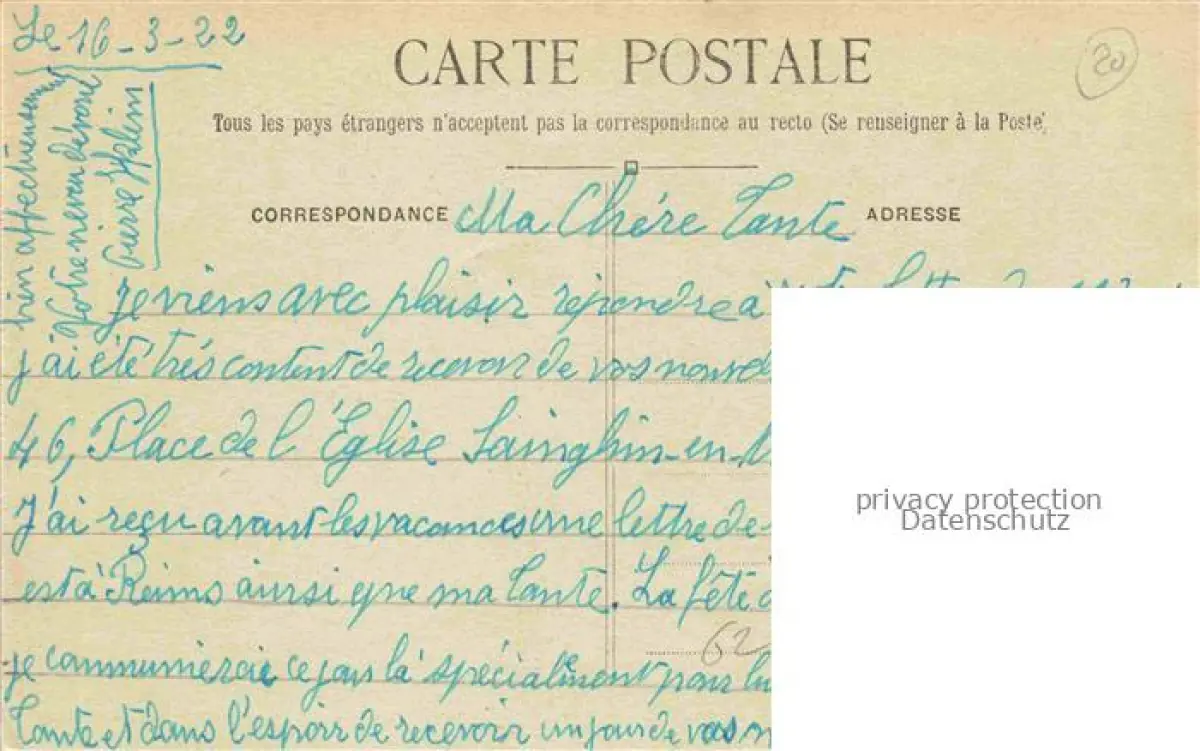 Le 16-3-22
20
CARTE POSTALE
Tous les pays étrangers n'acceptent pas la correspondance au recto (Se renseigner à la Poste)
CORRESPONDANCE
ADRESSE
Ma Chére Tante
Je viens avec plaisir répondre a
j'ai été trés content de recevoir de vos
46, Place de l'Église Sainghin-en-
J'ai reçu avant les vacances une lettre de
est à Reims ainsi que ma Tante. La fête
je communierai ce jour là spécialement pour
62
Tante et dans l'espoir de recevoir un jour de vos
bien affectueusement
Votre neveu dévoué
Pierre
privacy protection
Datenschutz